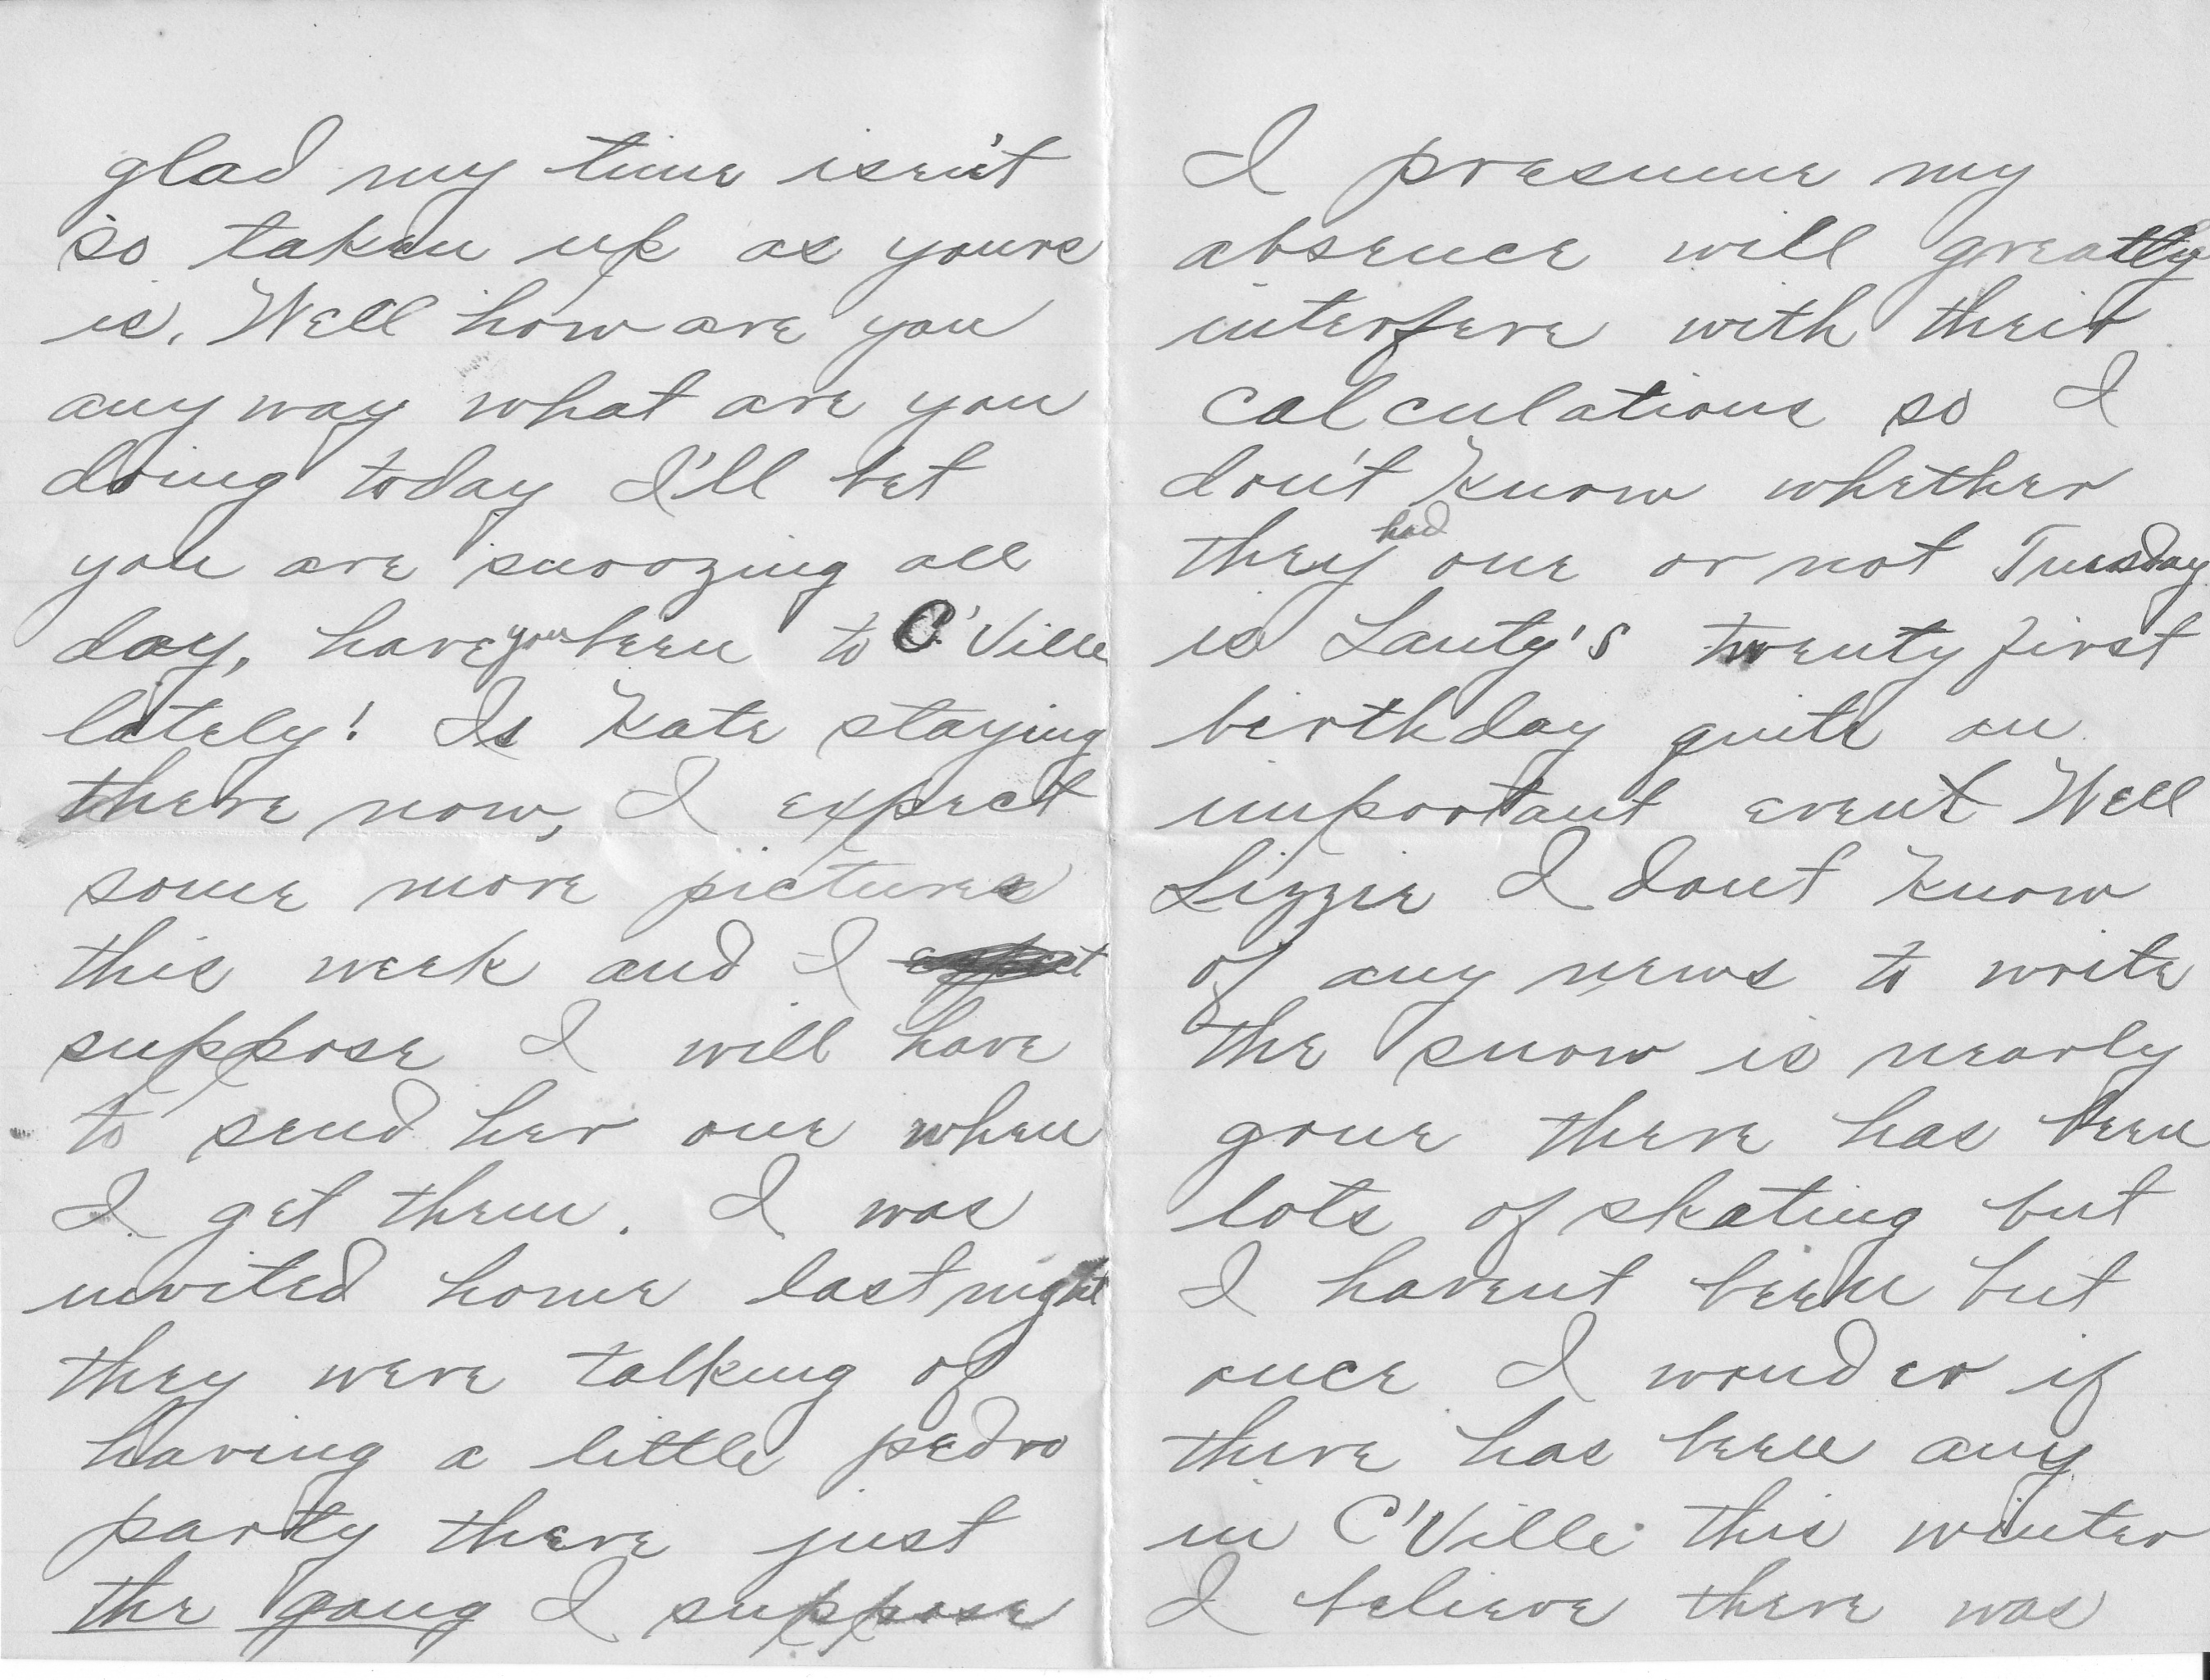 glad my time isen't
so taken up as yours
is. Well how are you
any way what are you
doing today I'll bet
you are snoozing all
day, have you been to C'Ville
lately! Is Kate staying
there now, I expect
some more pictures
this week and I expect
suppose I will have
to send her one when
I get them. I was
invited home last night
they were talking of
having a little pedro
party there just
the gang I suppose
I presume my
absence will greatly
interfere with their
calculations so I
don't know whether
they had one or not Tuesday
is Lanty's twenty first
birthday quite an
important event Well
Lizzie I dont know
of any news to write
the snow is nearly
gone there has been
lots of skating but
I havent been but
once I wonder if
there has been any
in C'Ville this winter
I believe there was